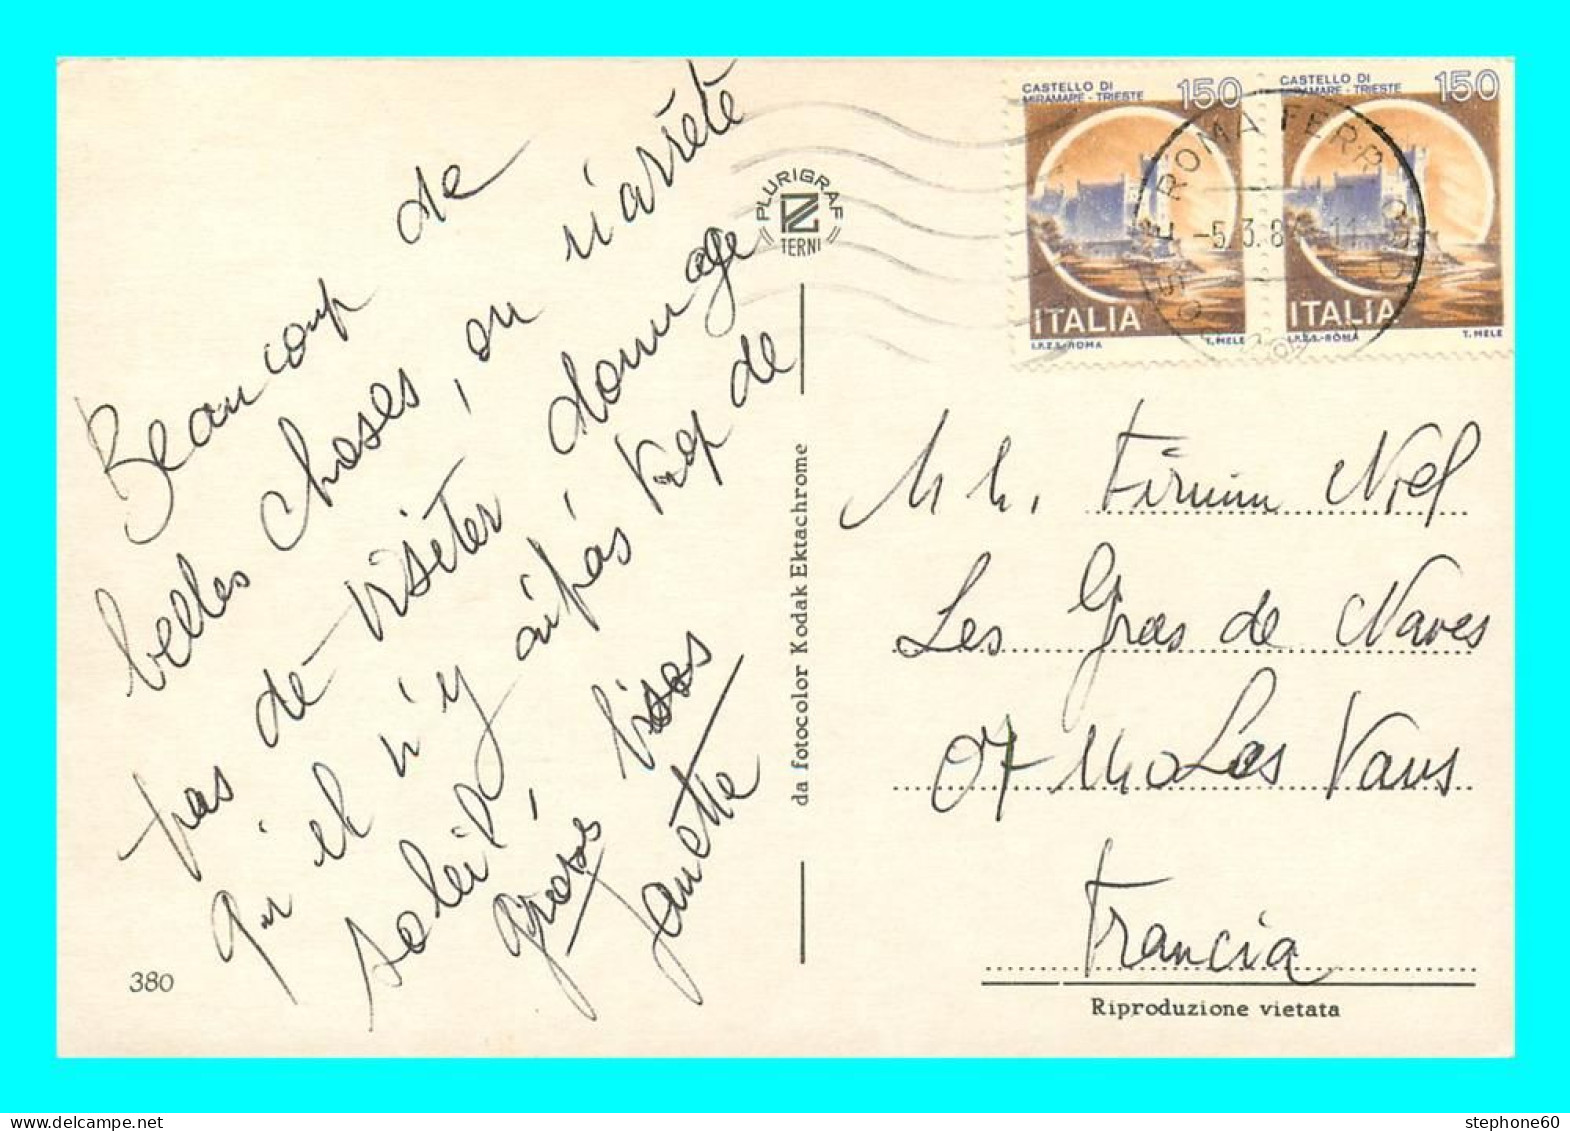 Beaucoup de
belles choses, on n'arrête
pas de visiter, domage
qu'il n'y ai pas trop de
soleil,
grosses bises
Janette
380
PLURIGRAF
TERNI
da fotocolor Kodak Ektachrome
CASTELLO DI
MIRAMARE - TRIESTE
150
ITALIA
I.P.Z.S.-ROMA
T. MELE
CASTELLO DI
MIRAMARE - TRIESTE
150
ITALIA
I.P.Z.S.-ROMA
T. MELE
ROMA FERR
-5.3.8
11
M M. Firmin Niel
Les Gras de Naves
07 140 Les Vans
Francia
Riproduzione vietata
stephone60